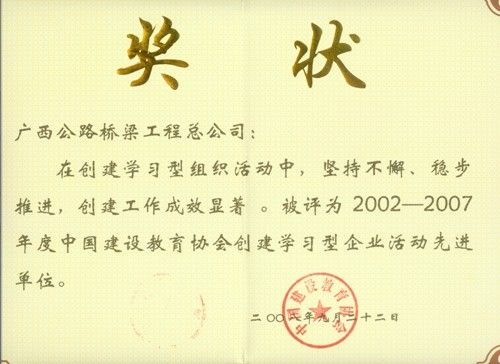 奖状
广西公路桥梁工程总公司：
在创建学习型组织活动中，坚持不懈、稳步
推进，创建工作成效显著 。被评为 2002—2007
年度中国建设教育协会创建学习型企业活动先进
单位。
中国建设教育协会
二〇〇八年九月二十二日